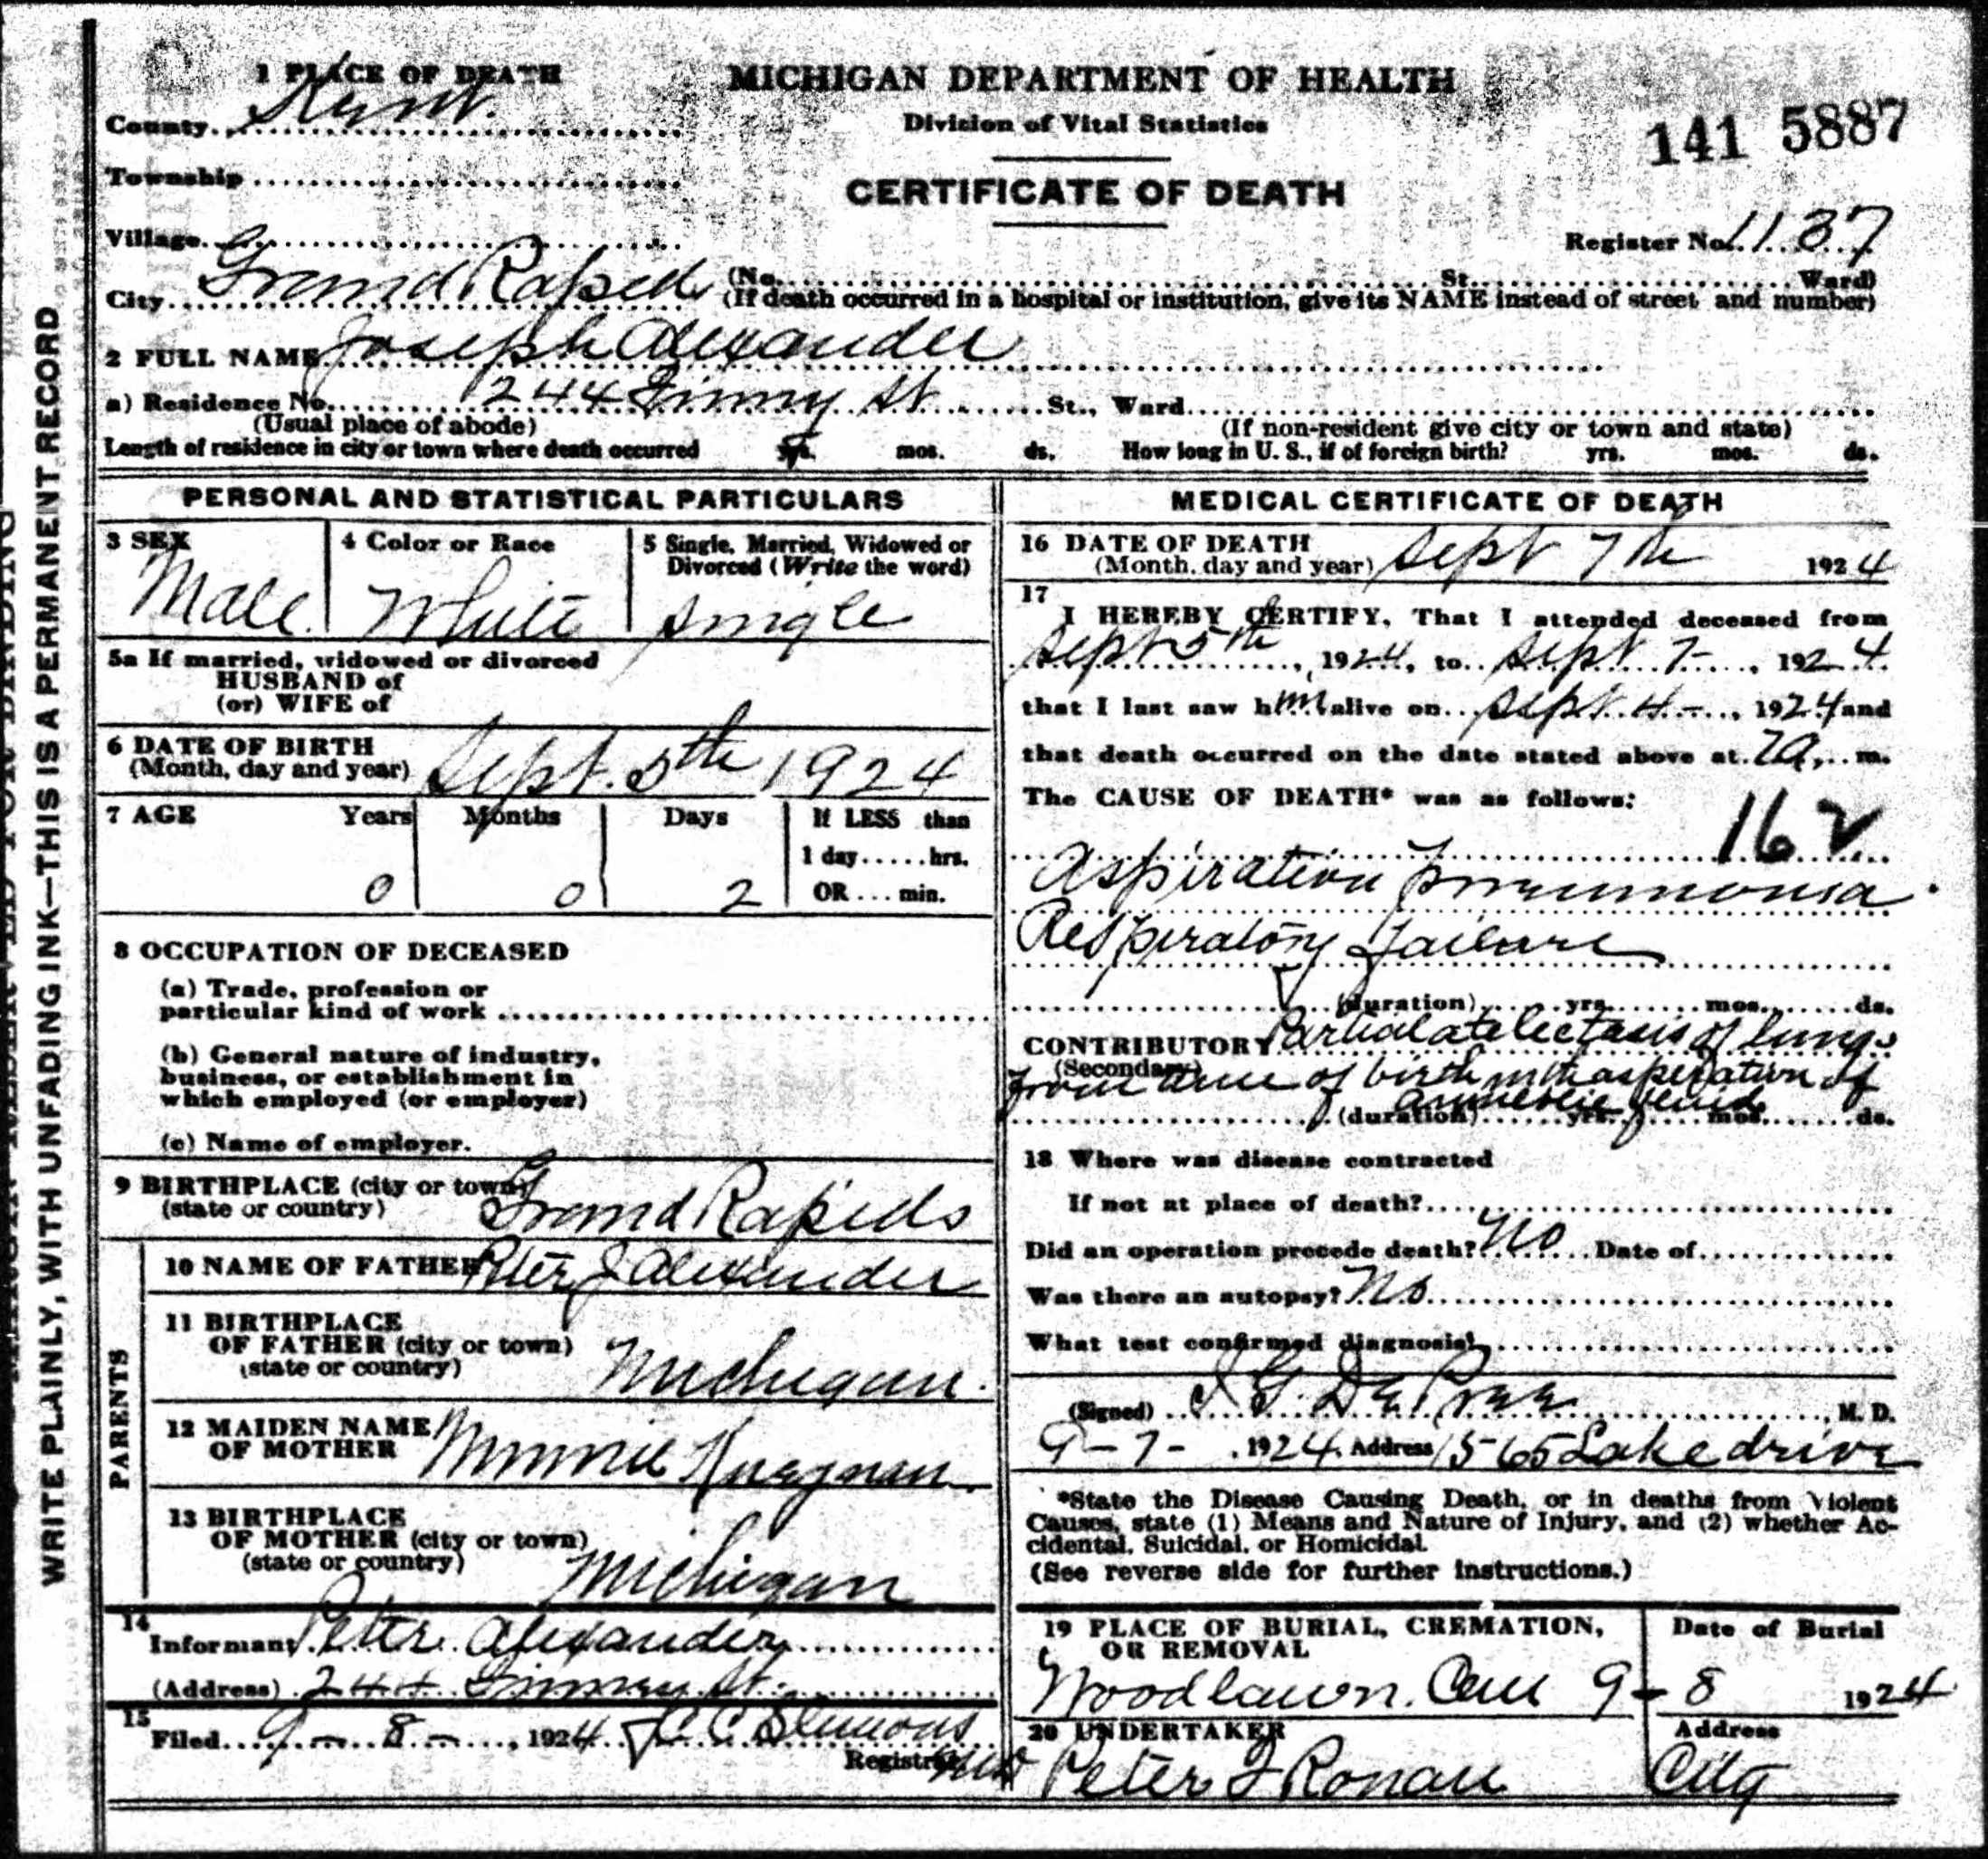 1 PLACE OF DEATH
County Kent
Township
Village
City Grand Rapids
MICHIGAN DEPARTMENT OF HEALTH
Division of Vital Statistics
CERTIFICATE OF DEATH
141 5887
Register No. 1137
(No. St. Ward)
(If death occurred in a hospital or institution, give its NAME instead of street and number)
2 FULL NAME Joseph Alexander
a) Residence No. 244 St St., Ward
(Usual place of abode) (If non-resident give city or town and state)
Length of residence in city or town where death occurred yrs. mos. ds. How long in U. S., if of foreign birth? yrs. mos. ds.
PERSONAL AND STATISTICAL PARTICULARS
3 SEX Male
4 Color or Race White
5 Single, Married, Widowed or
Divorced (Write the word)
Single
5a If married, widowed or divorced
HUSBAND of
(or) WIFE of
6 DATE OF BIRTH
(Month, day and year) Sept. 5th 1924
7 AGE Years Months Days If LESS than
1 day......hrs.
0 0 2 OR...min.
8 OCCUPATION OF DECEASED
(a) Trade, profession or
particular kind of work
(b) General nature of industry,
business, or establishment in
which employed (or employer)
(c) Name of employer.
9 BIRTHPLACE (city or town)
(state or country) Grand Rapids
PARENTS
10 NAME OF FATHER Peter J Alexander
11 BIRTHPLACE
OF FATHER (city or town)
(state or country) Michigan
12 MAIDEN NAME
OF MOTHER Minnie
13 BIRTHPLACE
OF MOTHER (city or town)
(state or country) Michigan
14
Informant Peter Alexander
(Address) 244 St.
15
Filed 9-8-, 1924 C C Slemons
Registrar MD
MEDICAL CERTIFICATE OF DEATH
16 DATE OF DEATH
(Month, day and year) Sept 7th 1924
17
I HEREBY CERTIFY, That I attended deceased from
Sept 5th, 1924, to Sept 7-, 1924
that I last saw him alive on Sept 4-, 1924 and
that death occurred on the date stated above at 7a. m.
The CAUSE OF DEATH* was as follows:
162
Aspiration pneumonia
Respiratory failure
(duration) yrs. mos. ds.
CONTRIBUTORY Partial atelectasis of lungs
(Secondary)
from time of birth with aspiration of
amniotic fluid
(duration) yrs. mos. ds.
18 Where was disease contracted
If not at place of death?
Did an operation precede death? No Date of
Was there an autopsy? No
What test confirmed diagnosis?
(Signed) G. De Pree, M. D.
9-7-, 1924. Address 1565 Lake drive
*State the Disease Causing Death, or in deaths from Violent
Causes, state (1) Means and Nature of Injury, and (2) whether Ac-
cidental, Suicidal, or Homicidal.
(See reverse side for further instructions.)
19 PLACE OF BURIAL, CREMATION,
OR REMOVAL
Woodlawn Cem
Date of Burial
9-8 1924
20 UNDERTAKER
Peter J Ronan
Address
City
WRITE PLAINLY, WITH UNFADING INK—THIS IS A PERMANENT RECORD